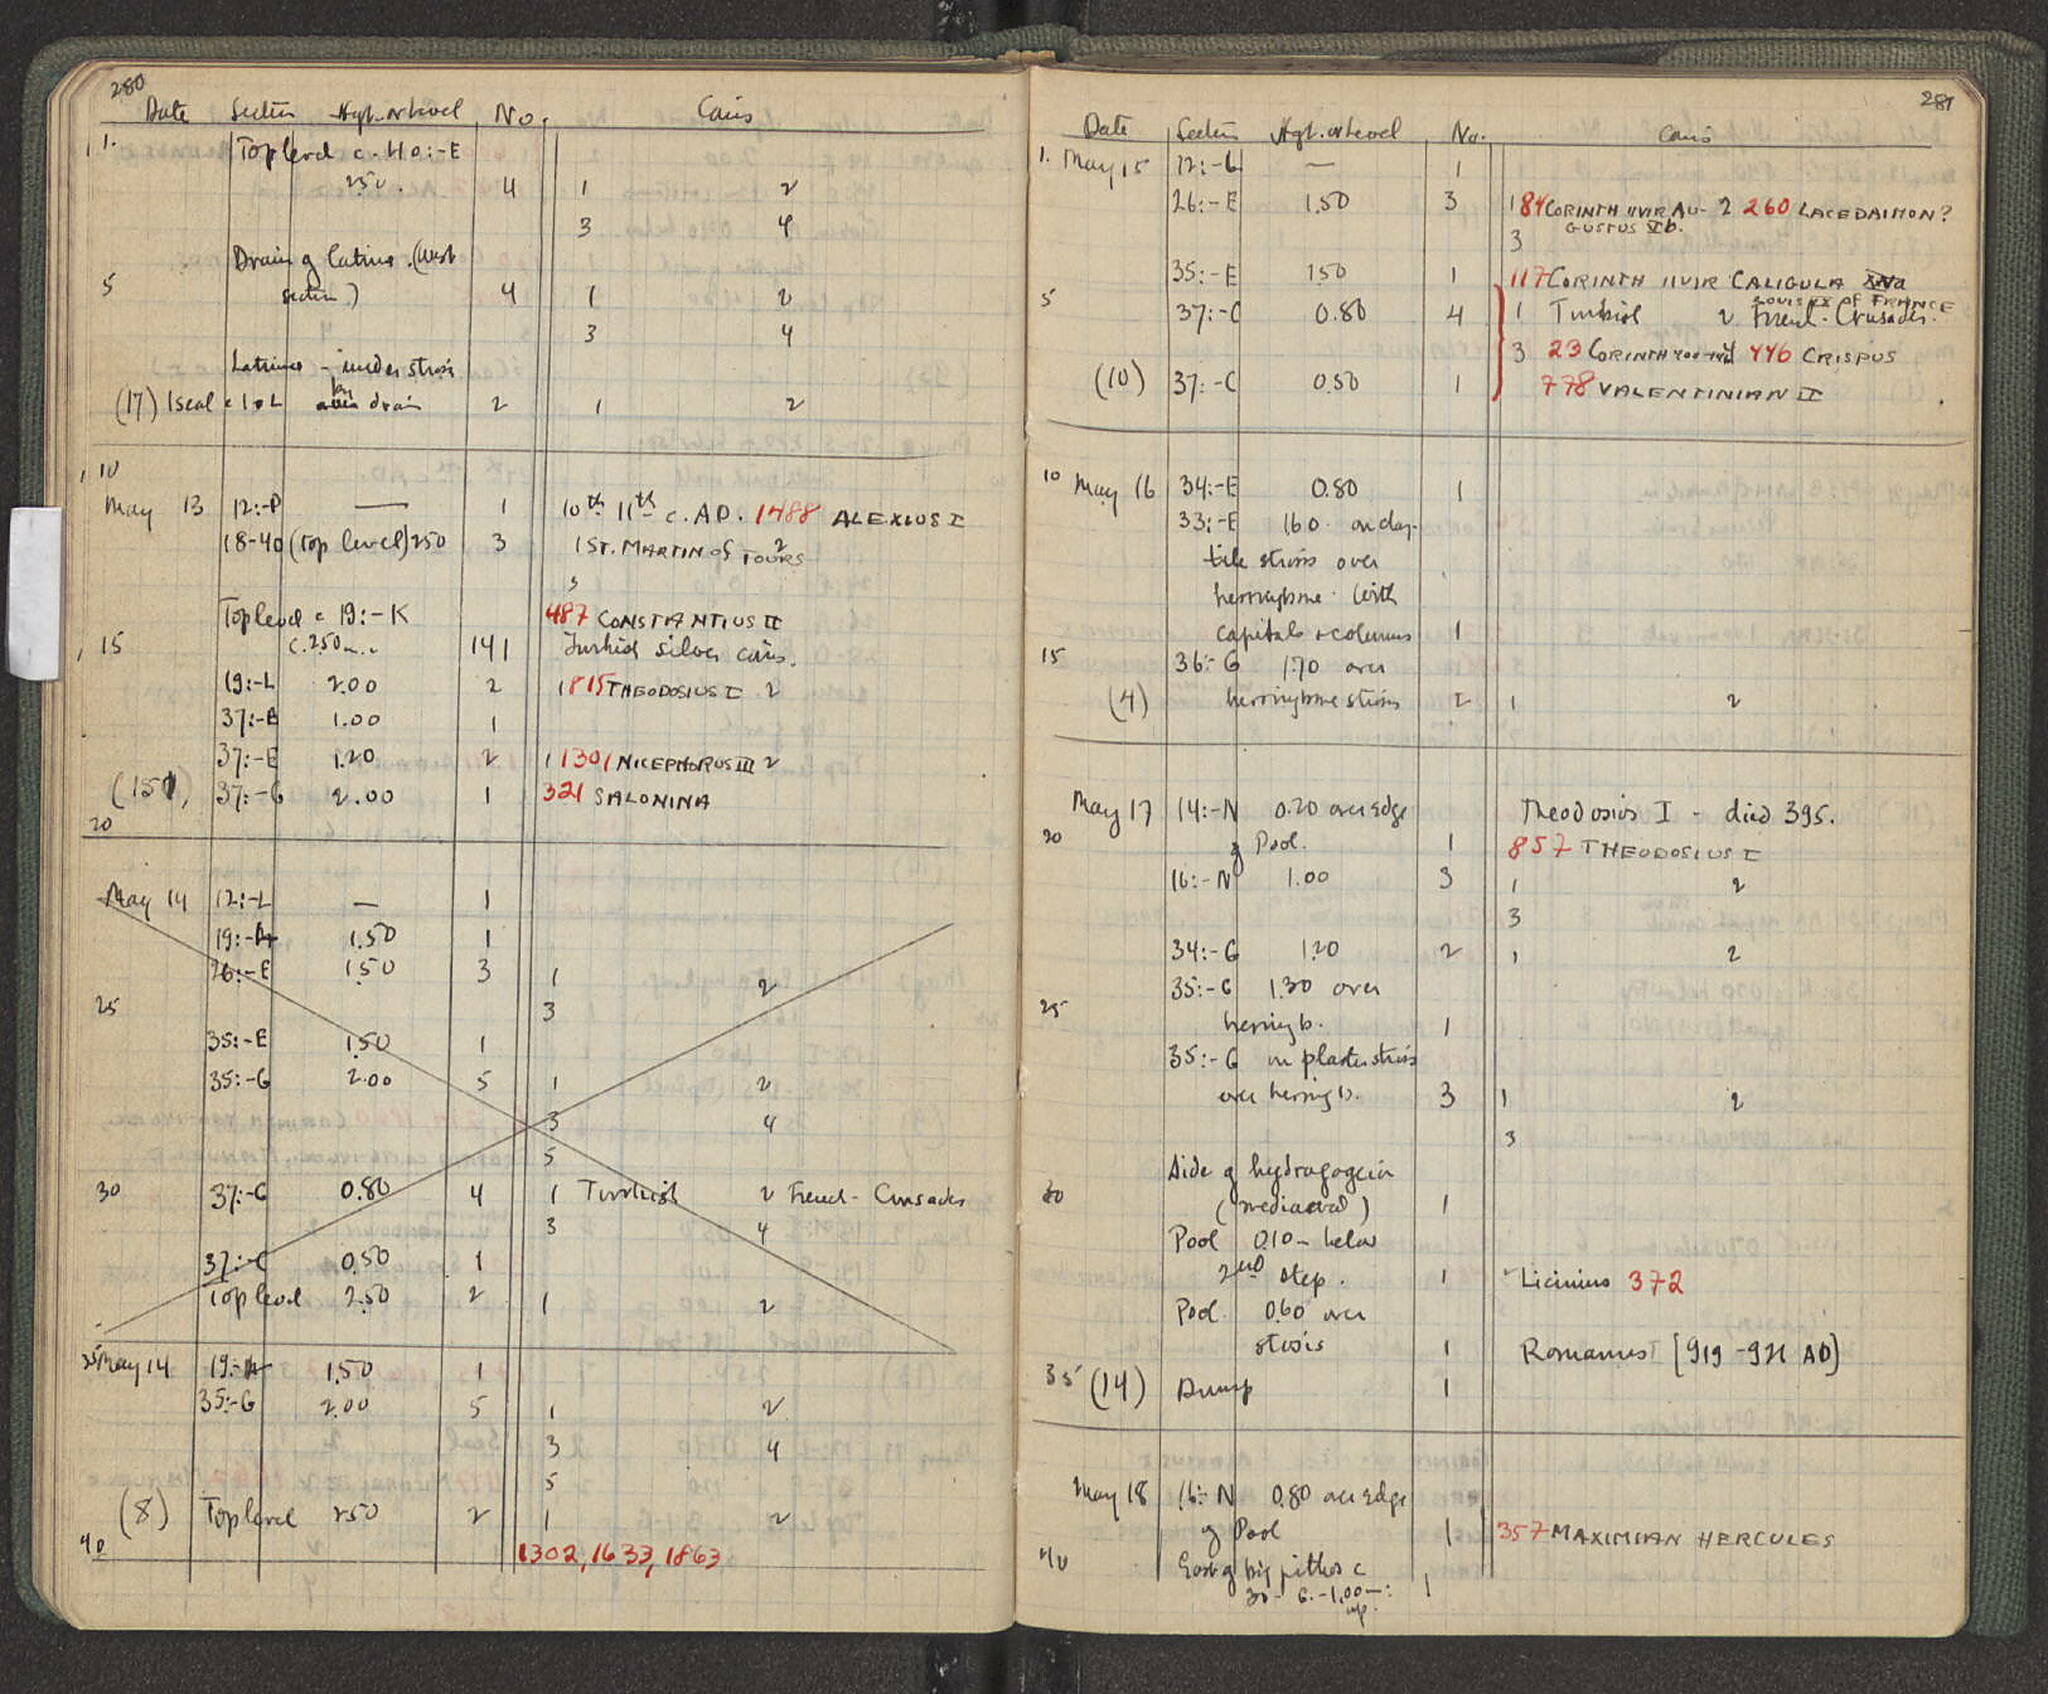 280
Date Section Hgt. or level No. Coins
1. Top level c. 40:-E
250. 4 1 2
3 4
Drain of latrine. (West
5 section) 4 1 2
3 4
Latrines - under strosis
(17) 1 seal c 10 L by drain 2 1 2
10
May 13 12:-P — 1 10th 11th c. AD. 1488 ALEXIUS I
18-40 (top level) 250 3 1 ST. MARTIN OF TOURS 2
3
Top level c 19:-K 487 CONSTANTIUS II
15 c. 250 m. 141 Turkish silver coins.
19:-L 2.00 2 1 815 THEODOSIUS I 2
37:-B 1.00 1
37:-E 1.20 2 1 1301 NICEPHORUS III 2
(151) 37:-G 2.00 1 321 SALONINA
20
May 14 12:-L — 1
19:-A 1.50 1
26:-E 1.50 3 1 2
25 3
35:-E 1.50 1
35:-G 2.00 5 1 2
3 4
5
30 37:-G 0.80 4 1 Turkish 2 French - Crusades
3 4
37:-C 0.50 1
Top level 2.50 2 1 2
35 May 14 19:-A 1.50 1
35:-G 2.00 5 1 2
3 4
5
(8) Top level 250 2 1 2
40 1302, 1633, 1863
281
Date Section Hgt. or level No. Coins
1. May 15 12:-G — 1
26:-E 1.50 3 1 84 CORINTH IIVIR AU- 2 260 LACEDAIMON?
GUSTUS Vb.
3
35:-E 150 1 117 CORINTH IIVIR CALIGULA XVa
LOUIS IX OF FRANCE
5 37:-C 0.80 4 1 Turkish 2 French - Crusades.
3 23 CORINTH 400-146 4 446 CRISPUS
(10) 37:-C 0.50 1 778 VALENTINIAN II
10 May 16 34:-E 0.80 1
33:-E 1.60 on clay-
tile strosis over
herringbone with
capitals & columns 1
15 36:-G 1.70 over
(4) herringbone strosis 2 1 2
May 17 14:-N 0.20 over edge Theodosius I - died 395.
20 of Pool. 1 857 THEODOSIUS I
16:-N 1.00 3 1 2
3
34:-G 1.20 2 1 2
35:-G 1.30 over
25 herring b. 1
35:-G in plaster strosis
over herring b. 3 1 2
3
Side of hydragogeion
30 (mediaeval) 1
Pool 0.10 - below
2nd step. 1 Licinius 372
Pool. 0.60 over
strosis 1 Romanus I [919-921 AD]
35 (14) Dump 1
May 18 16:-N 0.80 over edge
of Pool 1 357 MAXIMIAN HERCULES
40 East of big pithos c
30 - G. -1.00-: 1
up.